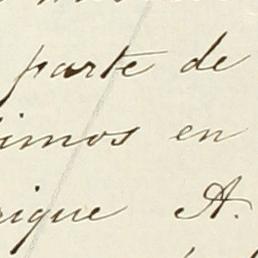 parte de
imos en
rique A.